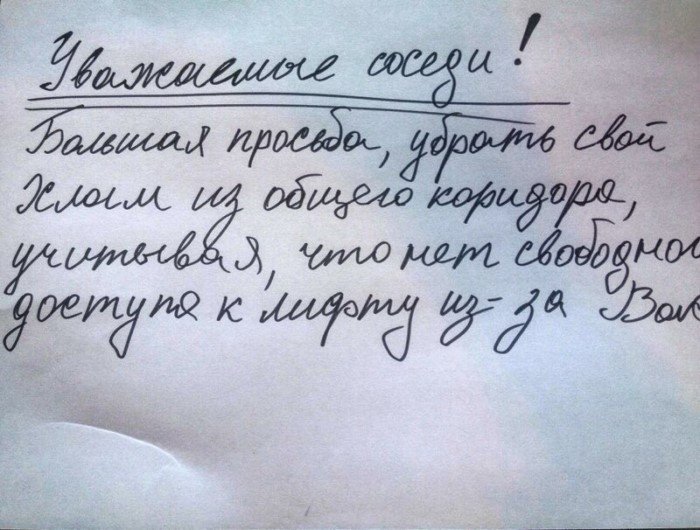 Уважаемые соседи!
Большая просьба, убрать свой
хлам из общего коридора,
учитывая, что нет свободно
доступа к лифту из-за